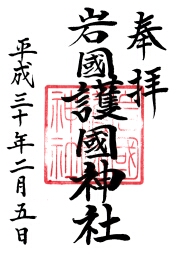 奉拝
岩國護國神社
平成三十年二月五日